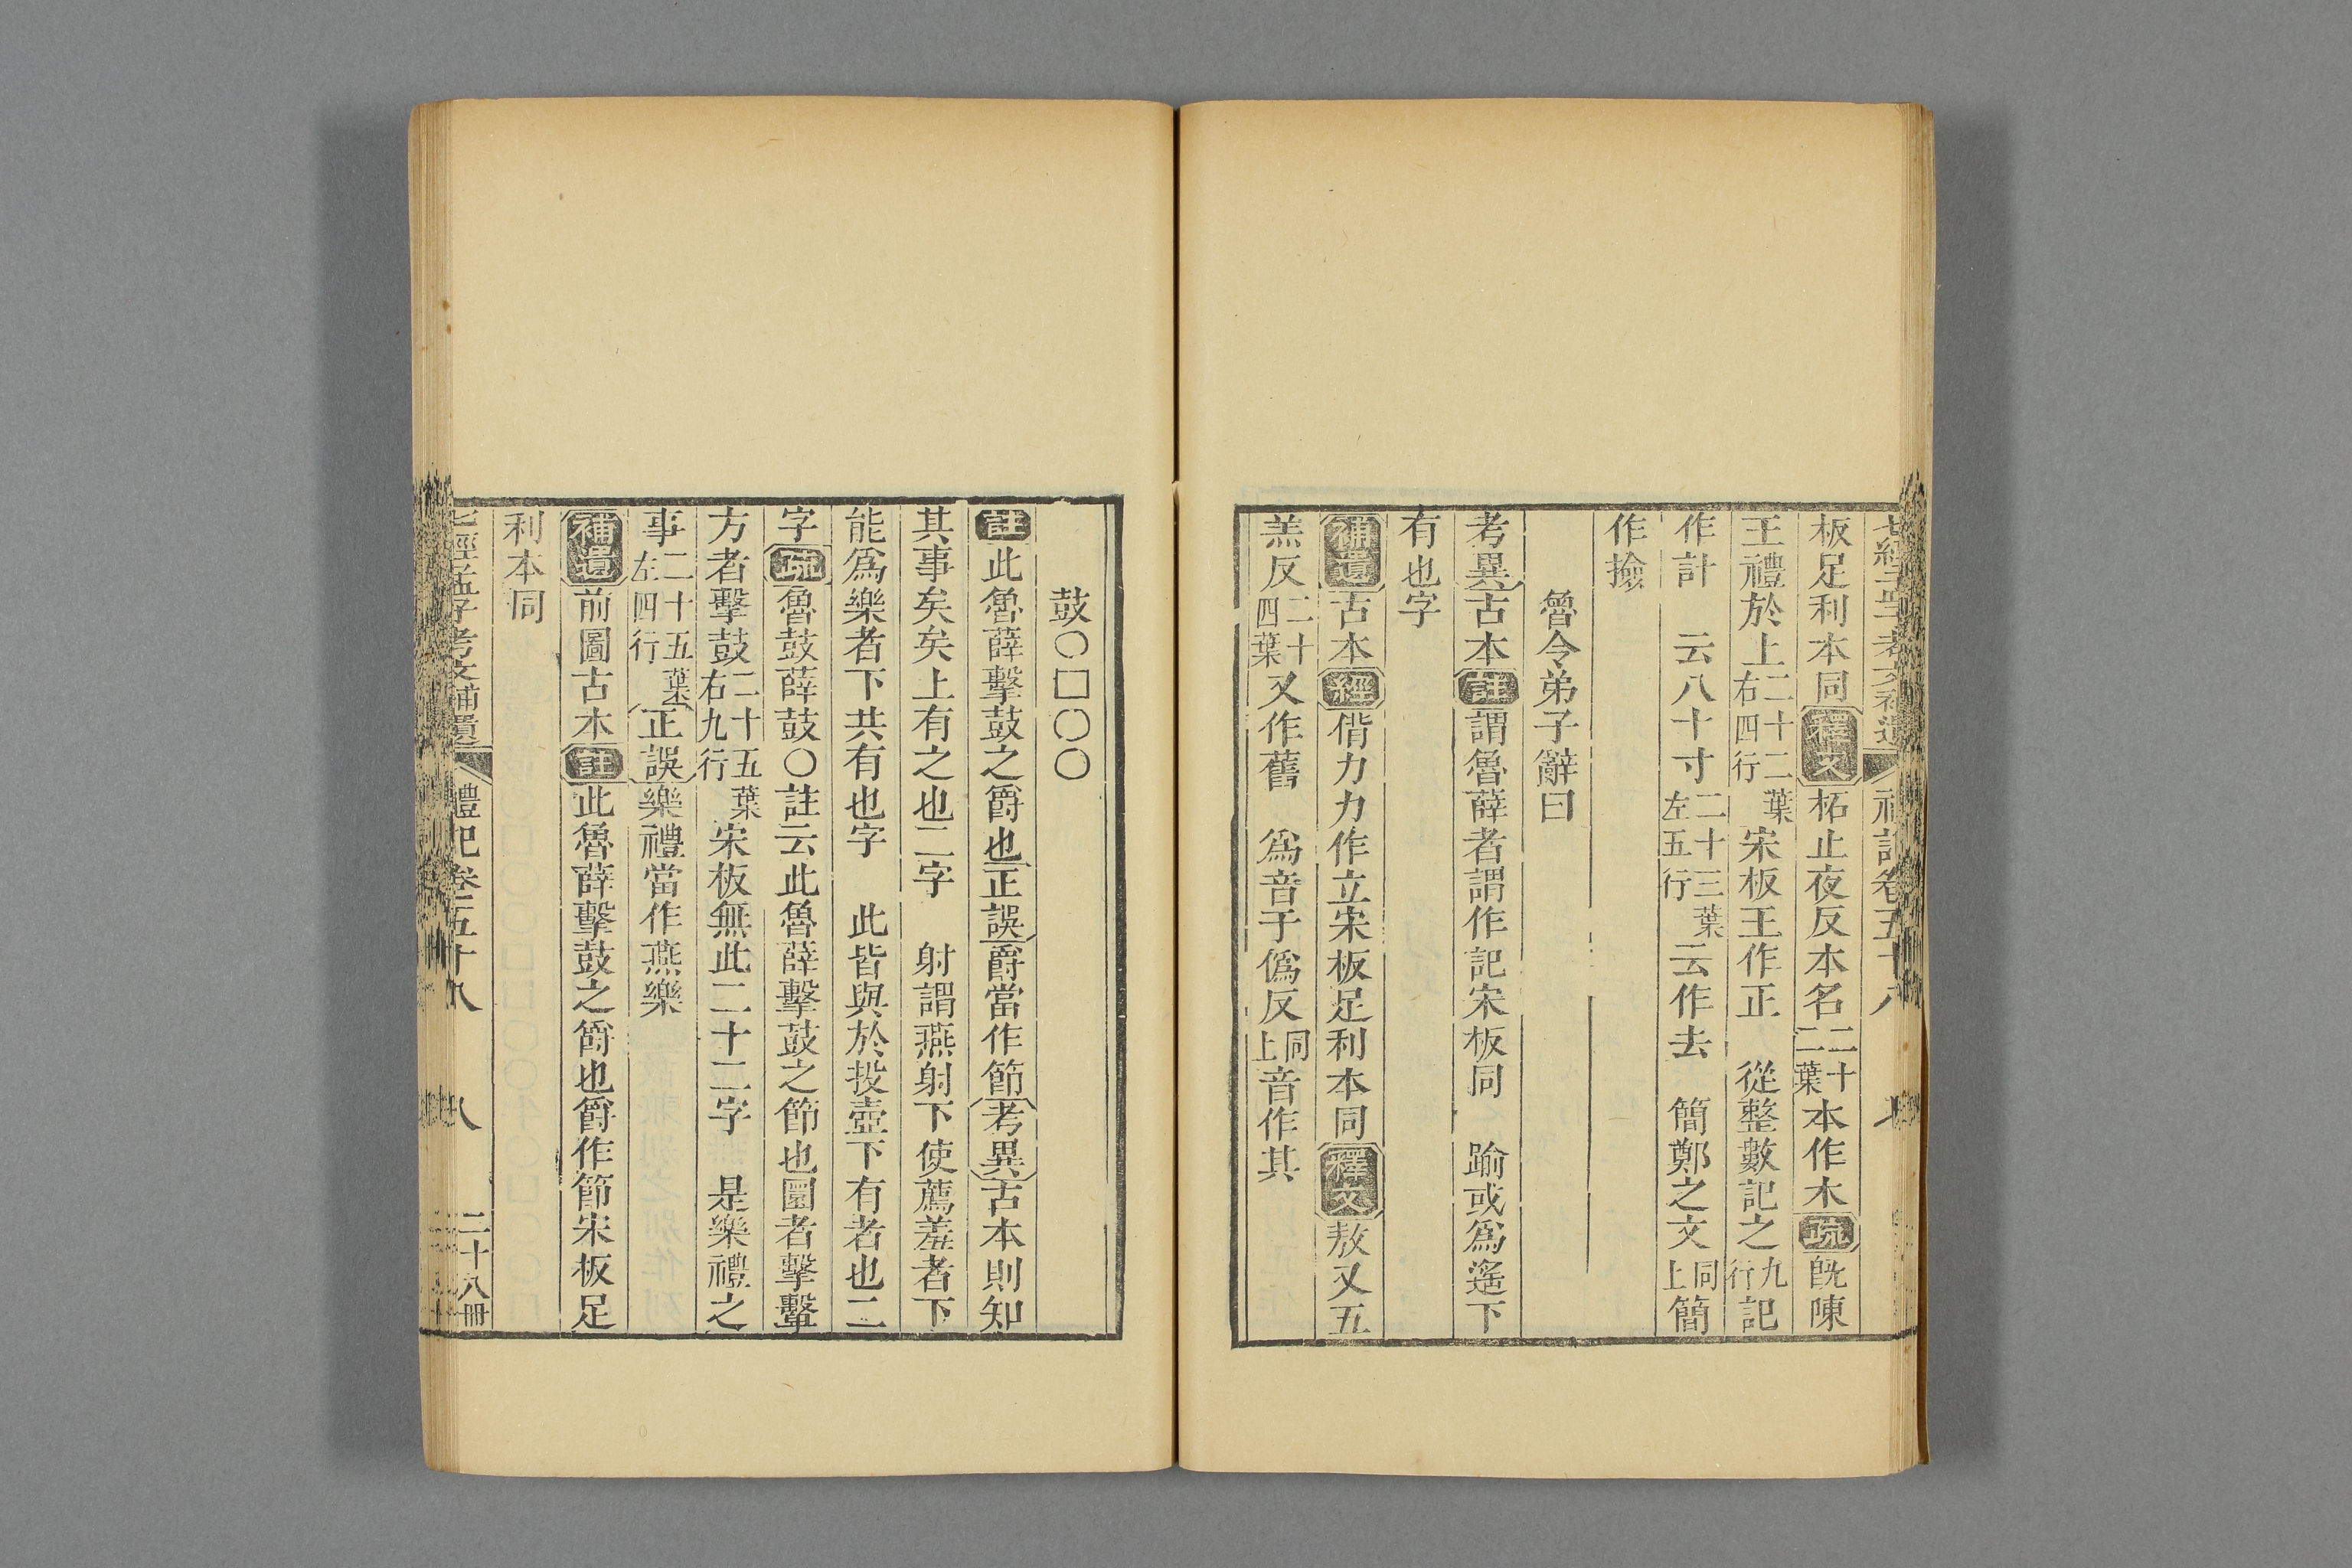 七經孟子考文補遺 禮記卷五十八 七
板足利本同釋文柘止夜反本名二十二葉本作木疏旣陳
王禮於上二十二葉右四行宋板王作正 從整數記之九行記
作計 云八十寸二十三葉左五行云作去 簡鄭之文同上簡
作撿
魯令弟子辭曰
考異古本註謂魯薛者謂作記宋板同 踰或爲遙下
有也字
補遺古本經偕力力作立宋板足利本同釋文敖又五
羔反二十四葉又作舊 爲音于僞反同上音作其
鼓○□○○
註此魯薛擊鼓之爵也正誤爵當作節考異古本則知
其事矣矣上有之也二字 射謂燕射下使薦羞者下
能爲樂者下共有也字 此皆與於投壺下有者也二
字疏魯鼓薛鼓○註云此魯薛擊鼓之節也圜者擊鼙
方者擊鼓二十五葉右九行宋板無此二十二字 是樂禮之
事二十五葉左四行正誤樂禮當作燕樂
補遺前圖古本註此魯薛擊鼓之爵也爵作節宋板足
利本同
七經孟子考文補遺 禮記卷五十八 八 二十八冊